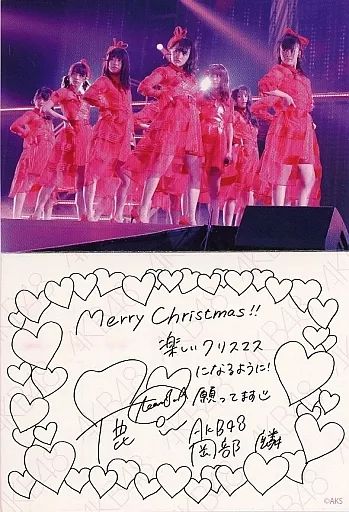 Merry Christmas!!
楽しいクリスマス
になるように!
願ってます
Team A
AKB48
岡部 麟
©AKS